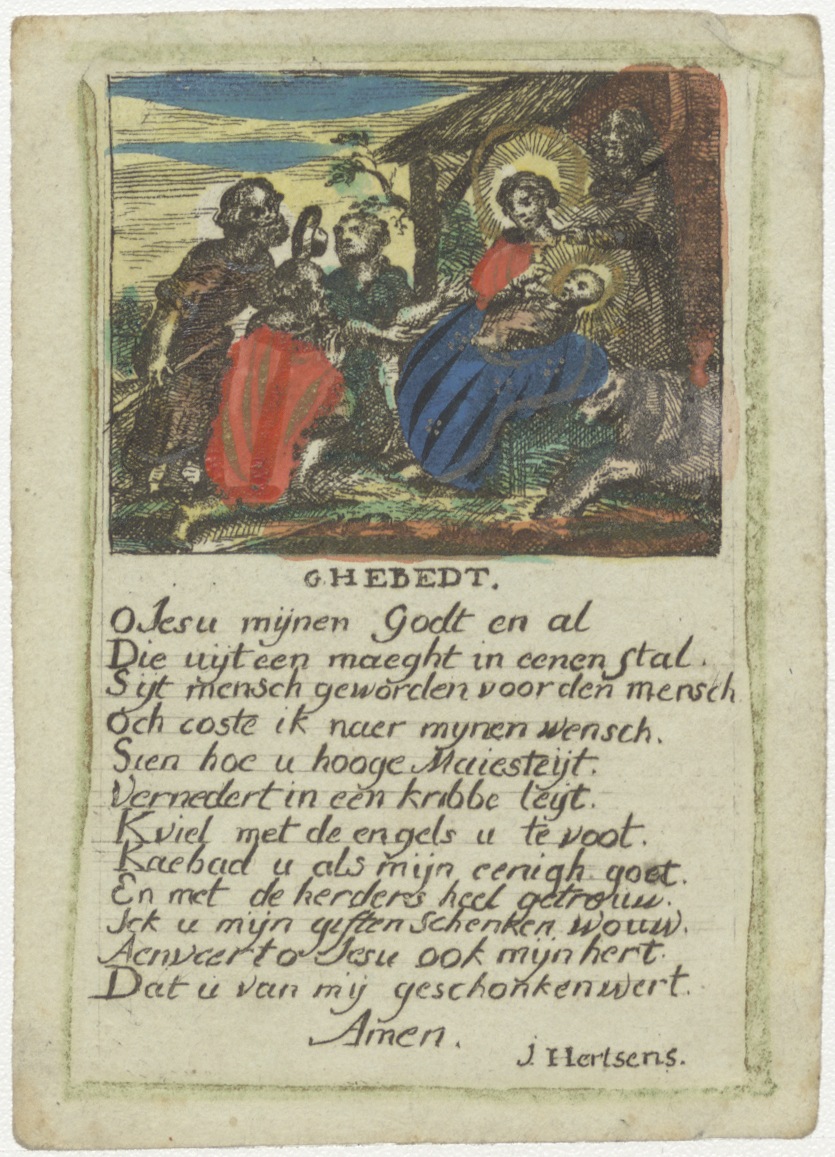 GHEBEDT.
O Jesu mijnen Godt en al
Die uijt een maeght in eenen stal.
Sijt mensch geworden voor den mensch
Och coste ik naer mynen wensch.
Sien hoe u hooge Maiesteijt.
Vernedert in een kribbe leijt.
K viel met de engels u te voot.
K aebad u als mijn eenigh goet.
En met de herders heel getrouw.
Ick u mijn giften schenken wouw.
Aenveert o Jesu ook mijn hert.
Dat u van mij geschonken wert.
Amen.
J. Hertsens.